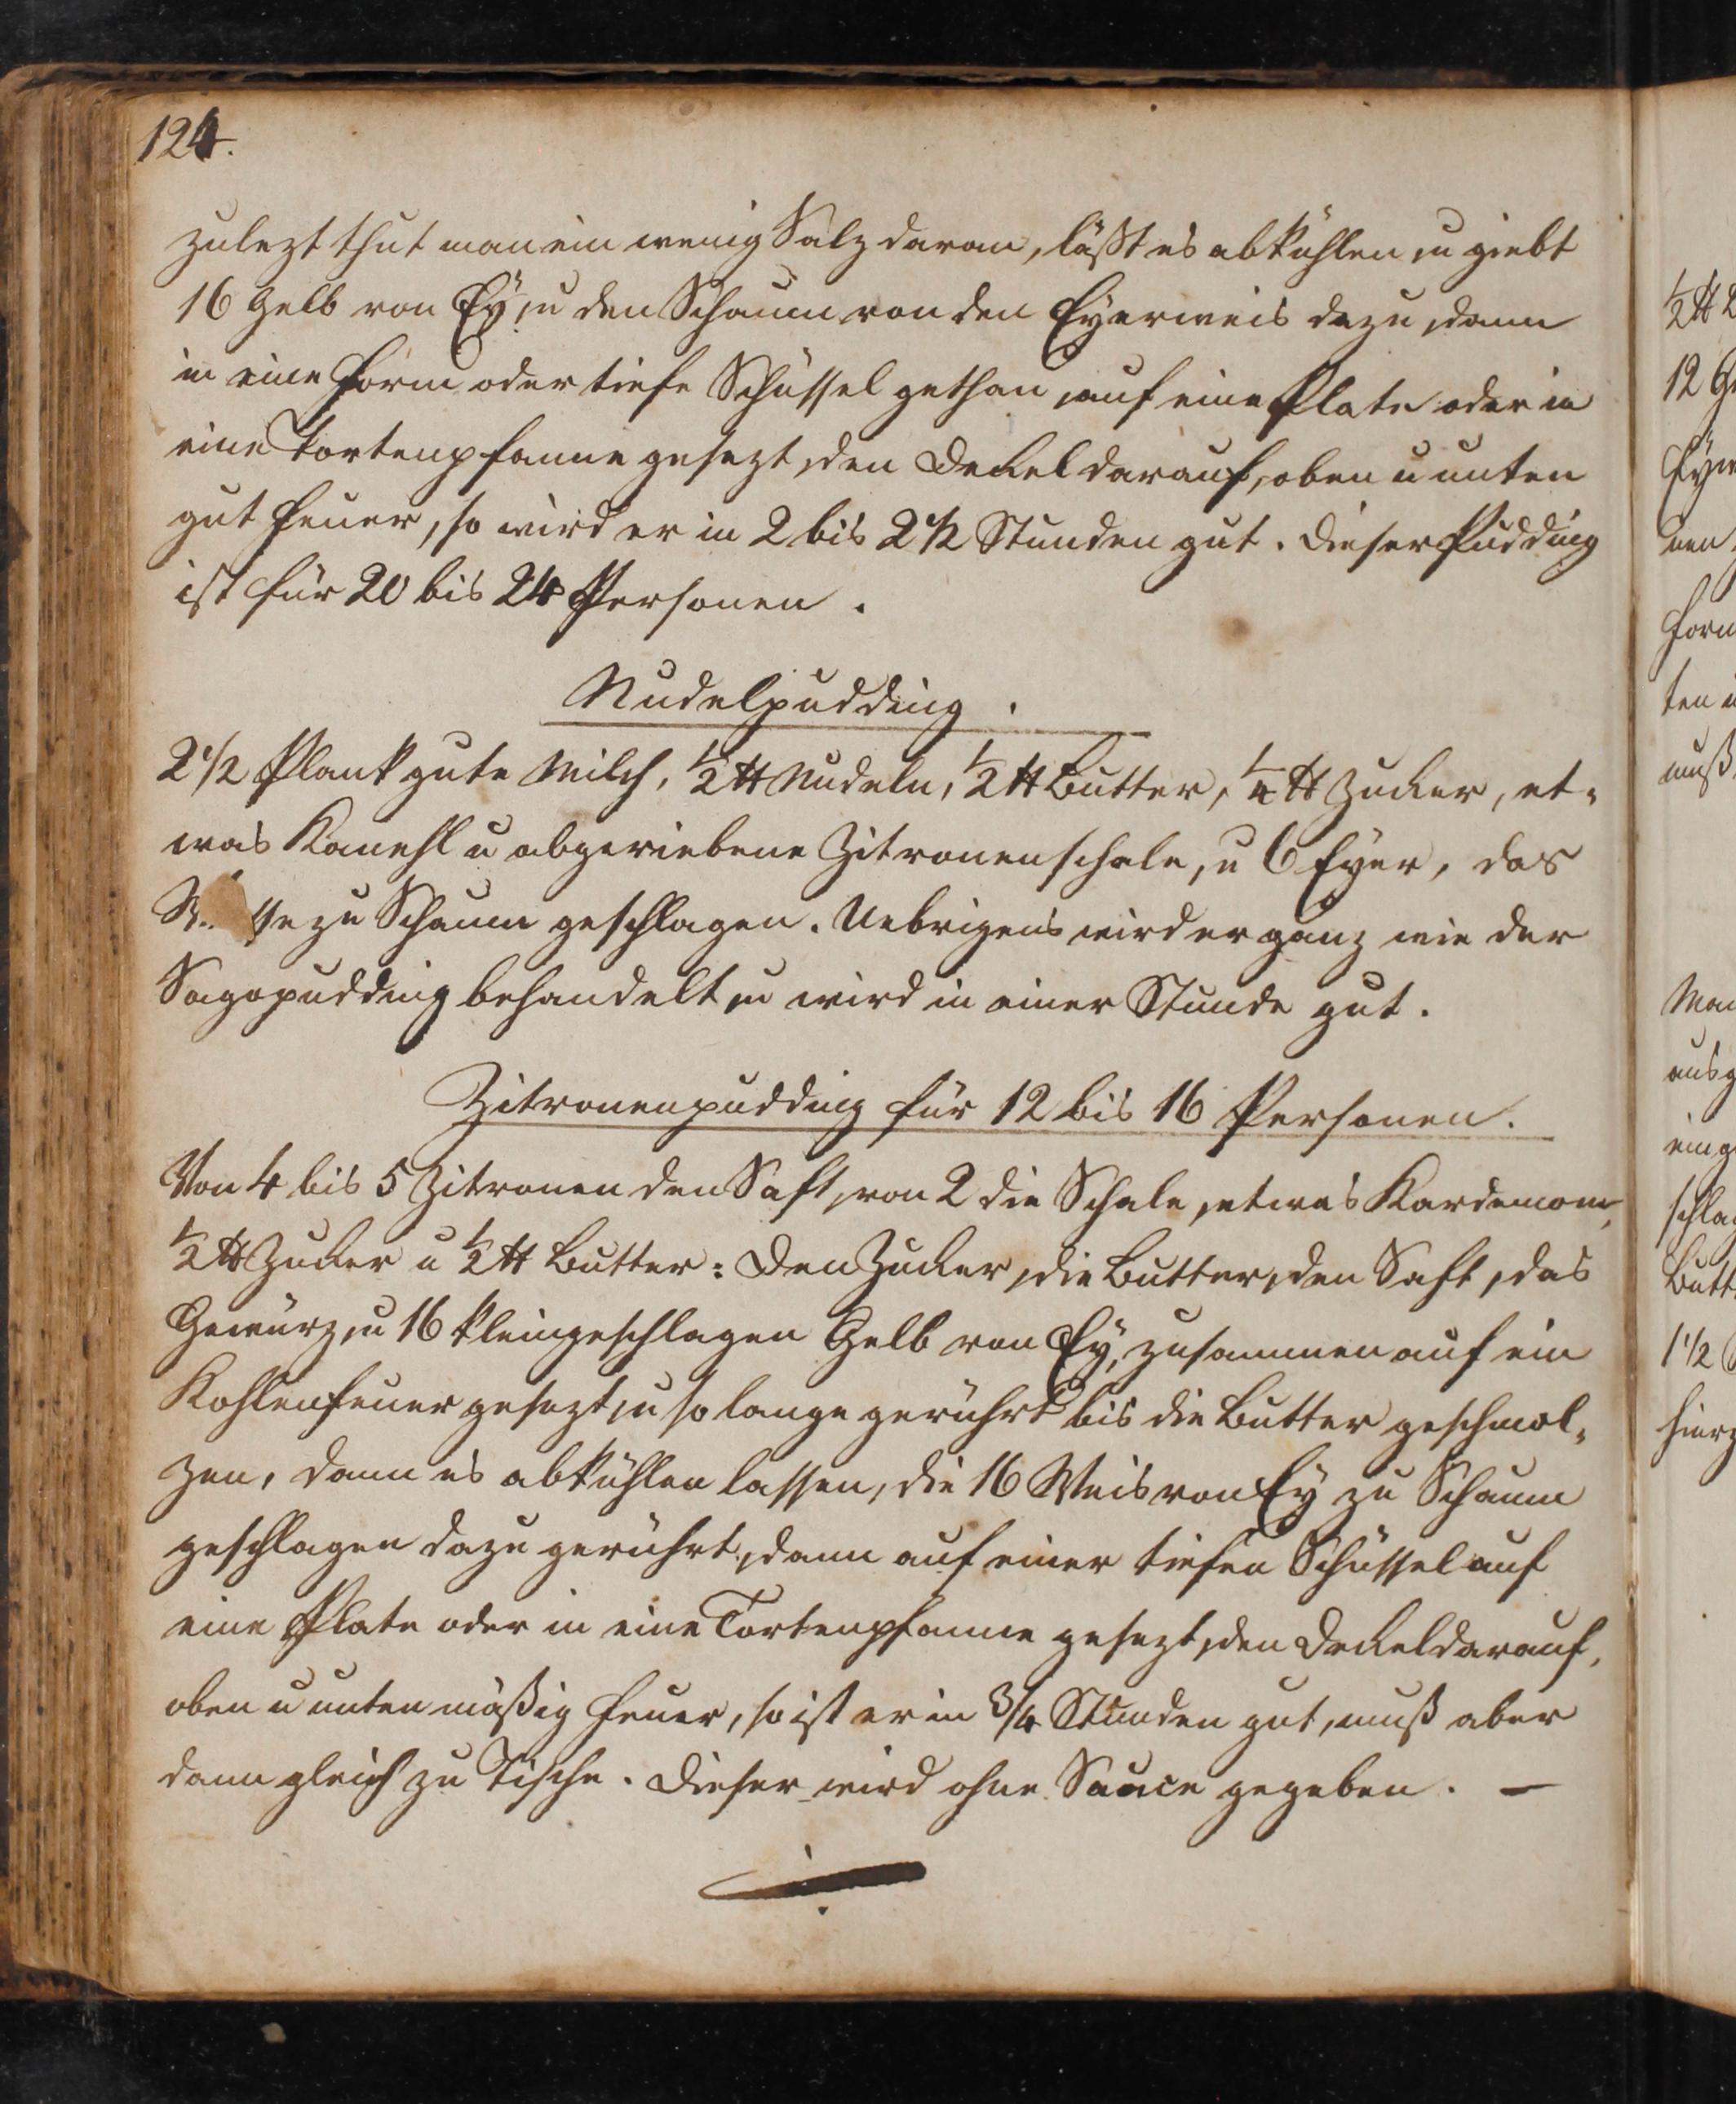 124.
zulezt thut man ein wenig Salz daran, läßt es abkühlen, u giebt
16 Gelb von Ey, u den Schaum von den Eyerweis dazu, dann
in eine Form oder tiefe Schüssel gethan, auf eine Plate oder in
eine Tortenpfanne gesezt, den Deckel darauf, oben u unten
gut Feuer, so wird er in 2 bis 2 1/2 Stunden gut. Dieser Pudding
ist für 20 bis 24 Personen.
Nudelpudding.
2 1/2 Plank gute Milch, 1/2 ℔ Nudeln, 1/2 ℔ Butter, 1/4 ℔ Zucker, et-
was Kanehl u abgeriebene Zitronenschale, u 6 Eyer, das
zu Schaum geschlagen. Uebrigens wird er ganz wie der
Sagopudding behandelt, u wird in einer Stunde gut.
Zitronenpudding für 12 bis 16 Personen.
Von 4 bis 5 Zitronen den Saft, von 2 die Schale, etwas Kardemom,
1/2 ℔ Zucker u 1/2 ℔ Butter: Den Zucker, die Butter, den Saft, das
Gewürz, u 16 kleingeschlagen Gelb von Ey, zusammen auf ein
Kohlenfeuer gesezt, u so lange gerührt bis die Butter geschmol-
zen, dann es abkühlen lassen, die 16 Weis von Ey zu Schaum
geschlagen dazu gerührt, dann auf einer tiefen Schüssel auf
eine Plate oder in eine Tortenpfanne gesezt, den Deckel darauf,
oben u unten mäßig Feuer, so ist er in 3/4 Stunden gut, muß aber
dann gleich zu Tische. Dieser wird ohne Sauce gegeben. —